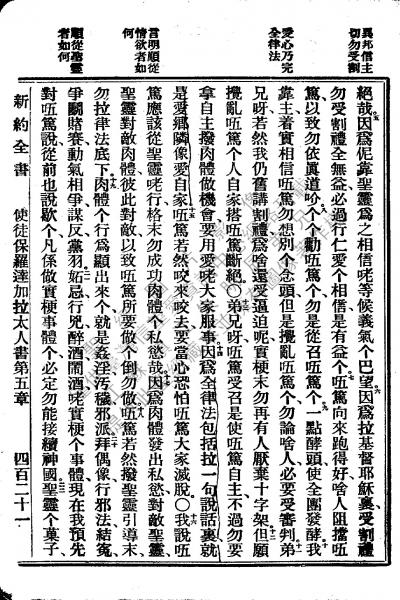 異邦信主
切勿受割
愛心乃完
全律法
言明順從
情欲者如
何
順從聖靈
者如何
絕哉因爲伲靠聖靈爲之相信咾等候義氣个巴望因爲拉基督耶穌裏受割禮
勿受割禮全無益必過行仁愛个相信是有益个㕶篤向來跑得好啥人阻擋㕶
篤以致勿依眞道吤个个勸㕶篤个勿是從召㕶篤个一點酵頭使全團發酵我
靠主着實相信㕶篤勿想別个念頭但是攪亂㕶篤个勿論啥人必要受審判弟
兄呀若然我仍舊講割禮爲啥還受逼迫呢實梗末勿再有人厭棄十字架但願
攪亂㕶篤个人自家搭㕶篤斷絕〇弟兄呀㕶篤受召是使㕶篤自主不過勿要
拿自主撥肉體做機會要用愛咾大家服事因爲全律法包括拉一句說話裏就
是愛鄉隣像愛自家㕶篤若然咬來咬去要當心恐怕㕶篤大家滅脫〇我說㕶
篤應該從聖靈咾行格末勿成功肉體个私慾哉因爲肉體發出私慾對敵聖靈
聖靈對敵肉體彼此對敵以致㕶篤所要做个倒勿做㕶篤若然撥聖靈引導末
勿拉律法底下肉體个行爲顯出來个就是姦淫污穢邪派拜偶像行邪法結寃
爭鬭賭賽動氣相爭謀反黨羽妒忌行兇醉酒鬧酒咾實梗个事體現在我預先
對㕶篤說從前也說歇个凡係做實梗事體个必定勿能接續神國聖靈个菓子
新約全書 使徒保羅達加拉太人書第五章 四百二十一